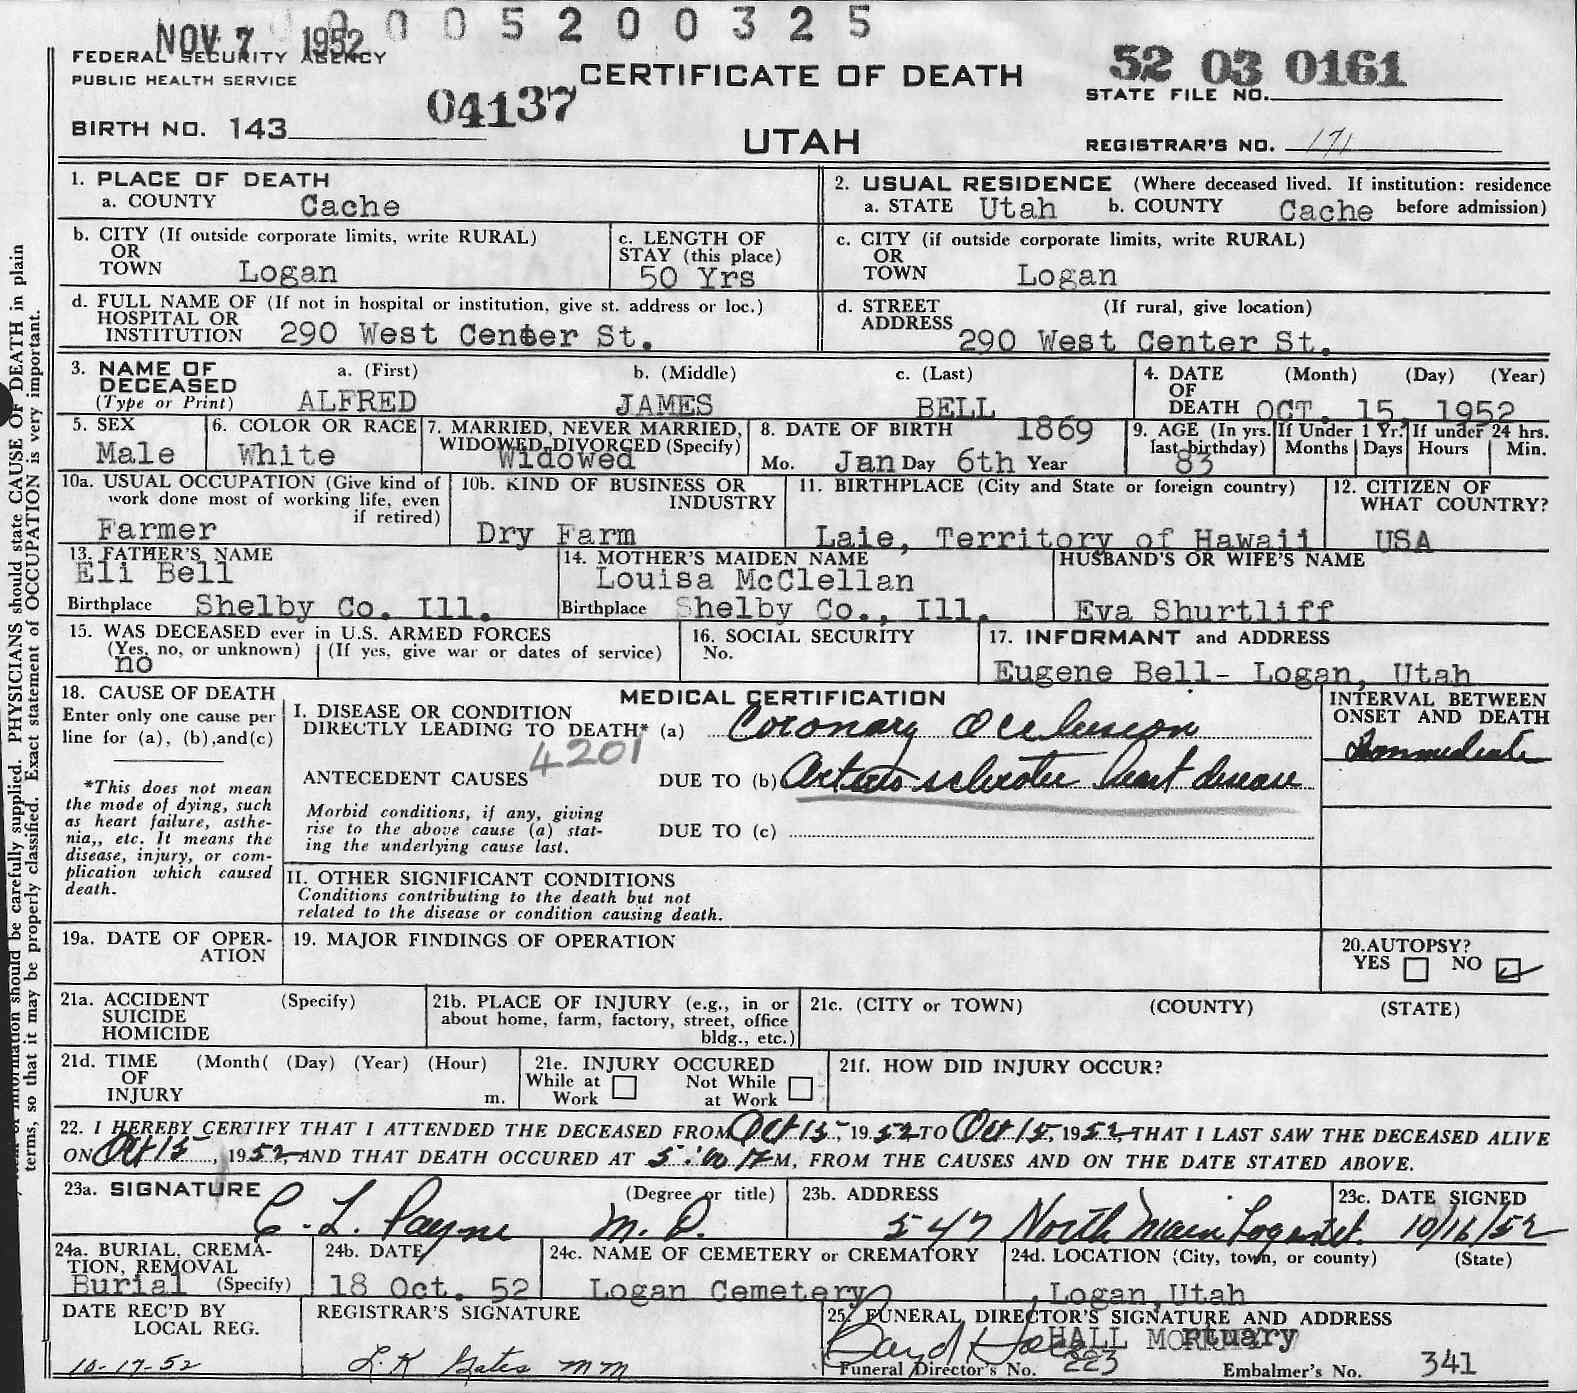 0005200325
NOV 7 1952
FEDERAL SECURITY AGENCY
PUBLIC HEALTH SERVICE
CERTIFICATE OF DEATH
52 03 0161
STATE FILE NO.
04137
BIRTH NO. 143
UTAH
REGISTRAR'S NO. 171
1. PLACE OF DEATH
a. COUNTY Cache
2. USUAL RESIDENCE (Where deceased lived. If institution: residence
a. STATE Utah b. COUNTY Cache before admission)
b. CITY (If outside corporate limits, write RURAL)
OR
TOWN Logan
c. LENGTH OF
STAY (this place)
50 Yrs
c. CITY (if outside corporate limits, write RURAL)
OR
TOWN Logan
d. FULL NAME OF (If not in hospital or institution, give st. address or loc.)
HOSPITAL OR
INSTITUTION 290 West Center St.
d. STREET (If rural, give location)
ADDRESS 290 West Center St.
3. NAME OF DECEASED a. (First) b. (Middle) c. (Last)
(Type or Print) ALFRED JAMES BELL
4. DATE (Month) (Day) (Year)
OF
DEATH OCT. 15, 1952
5. SEX
Male
6. COLOR OR RACE
White
7. MARRIED, NEVER MARRIED,
WIDOWED, DIVORCED (Specify)
Widowed
8. DATE OF BIRTH 1869
Mo. Jan Day 6th Year
9. AGE (In yrs.
last birthday)
83
If Under 1 Yr.
Months Days
If under 24 hrs.
Hours Min.
10a. USUAL OCCUPATION (Give kind of
work done most of working life, even
if retired)
Farmer
10b. KIND OF BUSINESS OR
INDUSTRY
Dry Farm
11. BIRTHPLACE (City and State or foreign country)
Laie, Territory of Hawaii
12. CITIZEN OF
WHAT COUNTRY?
USA
13. FATHER'S NAME
Eli Bell
Birthplace Shelby Co. Ill.
14. MOTHER'S MAIDEN NAME
Louisa McClellan
Birthplace Shelby Co., Ill.
HUSBAND'S OR WIFE'S NAME
Eva Shurtliff
15. WAS DECEASED ever in U.S. ARMED FORCES
(Yes, no, or unknown) (If yes, give war or dates of service)
no
16. SOCIAL SECURITY
No.
17. INFORMANT and ADDRESS
Eugene Bell- Logan, Utah
18. CAUSE OF DEATH
Enter only one cause per
line for (a), (b),and(c)
*This does not mean
the mode of dying, such
as heart failure, asthe-
nia,, etc. It means the
disease, injury, or com-
plication which caused
death.
MEDICAL CERTIFICATION
I. DISEASE OR CONDITION
DIRECTLY LEADING TO DEATH* (a) Coronary Occlusion
4201
ANTECEDENT CAUSES DUE TO (b) Arterio sclerotic heart disease
Morbid conditions, if any, giving
rise to the above cause (a) stat-
ing the underlying cause last.
DUE TO (c)
INTERVAL BETWEEN
ONSET AND DEATH
Immediate
II. OTHER SIGNIFICANT CONDITIONS
Conditions contributing to the death but not
related to the disease or condition causing death.
19a. DATE OF OPER-
ATION
19. MAJOR FINDINGS OF OPERATION
20.AUTOPSY?
YES NO
21a. ACCIDENT (Specify)
SUICIDE
HOMICIDE
21b. PLACE OF INJURY (e.g., in or
about home, farm, factory, street, office
bldg., etc.)
21c. (CITY or TOWN) (COUNTY) (STATE)
21d. TIME (Month( (Day) (Year) (Hour)
OF
INJURY m.
21e. INJURY OCCURED
While at Work Not While at Work
21f. HOW DID INJURY OCCUR?
22. I HEREBY CERTIFY THAT I ATTENDED THE DECEASED FROM Oct 15, 1952 TO Oct 15, 1952 THAT I LAST SAW THE DECEASED ALIVE
ON Oct 15, 1952, AND THAT DEATH OCCURED AT 5:00 P M, FROM THE CAUSES AND ON THE DATE STATED ABOVE.
23a. SIGNATURE (Degree or title)
C. L. Payne M. D.
23b. ADDRESS
547 North Main Logan Ut.
23c. DATE SIGNED
10/16/52
24a. BURIAL, CREMA-
TION, REMOVAL
Burial (Specify)
24b. DATE
18 Oct. 52
24c. NAME OF CEMETERY or CREMATORY
Logan Cemetery
24d. LOCATION (City, town, or county) (State)
, Logan,Utah
DATE REC'D BY
LOCAL REG.
10-17-52
REGISTRAR'S SIGNATURE
L. K Gates MM
25. FUNERAL DIRECTOR'S SIGNATURE AND ADDRESS
HALL Mortuary
Funeral Director's No. 223 Embalmer's No. 341
information should be carefully supplied. PHYSICIANS should state CAUSE OF DEATH in plain
terms, so that it may be properly classified. Exact statement of OCCUPATION is very important.